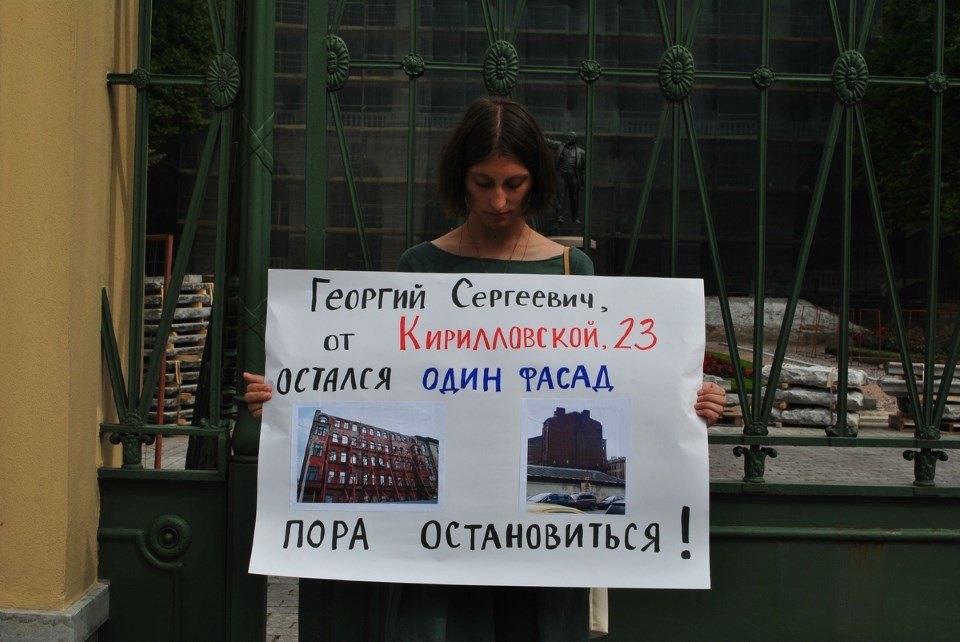 Георгий Сергеевич,
от Кирилловской, 23
остался один фасад
пора остановиться!